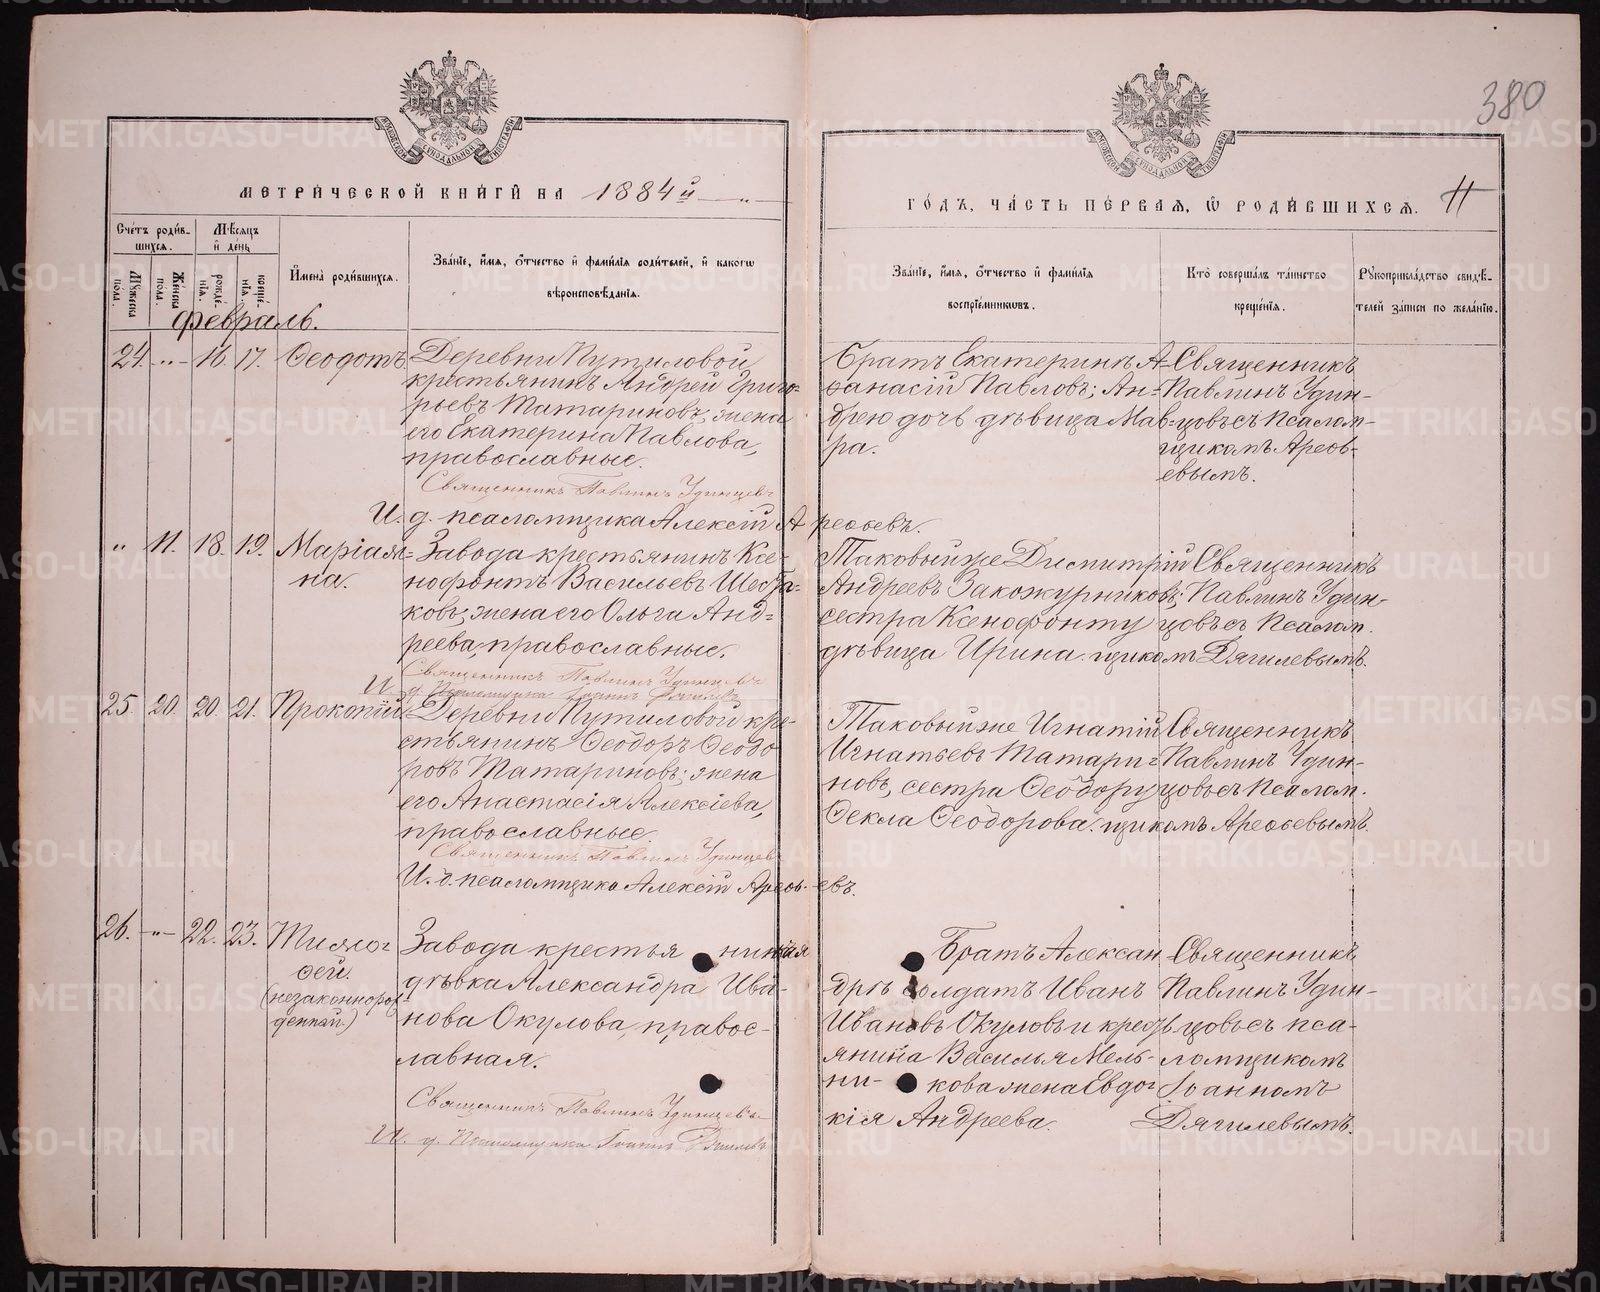 380
МЕТРИЧЕСКОЙ КНИГИ НА 1884й
ГОДЪ, ЧАСТЬ ПЕРВАЯ, Ѡ РОДИВШИХСЯ. 11
Счетъ родив-
шихся.
Мѣсяцъ
и день
Имена родившихся.
Званіе, имя, отчество и фамилія родителей, и какогѡ
вѣроисповѣданія.
Званіе, имя, отчество и фамилія
воспріемниковъ.
Кто совершалъ таинство
крещенія.
Рукоприкладство свидѣ-
телей записи по желанію.
Мужеска пола.
Женска пола.
рожде-нія.
креще-нія.
Февраль.
24. -"- 16. 17. Ѳеодотъ.
Деревни Путиловой
крестьянинъ Андрей Григо-
рьевъ Татариновъ; жена
его Екатерина Павлова,
православные.
Священникъ Павлинъ Удинцевъ
И. д. псаломщика Алексій Арефьевъ.
Братъ Екатеринѣ А-
ѳанасій Павловъ; Ан-
дрею дочь дѣвица Мав-
ра.
Священникъ
Павлинъ Удин-
цовъ съ псалом-
щикомъ Арефь-
евымъ.
" 11. 18. 19. Маріам-
на.
Завода крестьянинъ Ксе-
нофонтъ Васильевъ Шеста-
ковъ; жена его Ольга Анд-
реева, православные.
Священникъ Павлинъ Удинцевъ
И. д. Псаломщика Іоаннъ Дягилевъ
Таковый же Димитрій
Андреевъ Закожурниковъ;
сестра Ксенофонту
дѣвица Ирина.
Священникъ
Павлинъ Удин-
цовъ съ псалом.
щикомъ Дягилевымъ.
25. 20. 20. 21. Прокопій
Деревни Путиловой кре-
стьянинъ Ѳеодоръ Ѳеодо
ровъ Татариновъ; жена
его Анастасія Алексіева,
православные.
Священникъ Павлинъ Удинцевъ
И. д. псаломщика Алексій Арефь-евъ.
Таковый же Игнатій
Игнатьевъ Татари-
новъ, сестра Ѳеодору
Ѳекла Ѳеодорова.
Священникъ
Павлинъ Удин-
цовъ съ псалом.
щикомъ Арефьевымъ.
26. -"- 22. 23. Тимо-
ѳей.
(незаконнорож
денный)
Завода крестья нинская
дѣвка Александра Ива-
нова Окулова, правос-
лавная.
Священникъ Павлинъ Удинцевъ
И. д. Псаломщика Іоаннъ Дягилевъ
Братъ Алексан
дрѣ солдатъ Иванъ
Ивановъ Окуловъ и кресть
янина Василья Мель-
ни- кова жена Евдо-
кія Андреева.
Священникъ
Павлинъ Удин-
цовъ съ пса-
ломщикомъ
Іоанномъ
Дягилевымъ.
METRIKI.GASO-URAL.RU